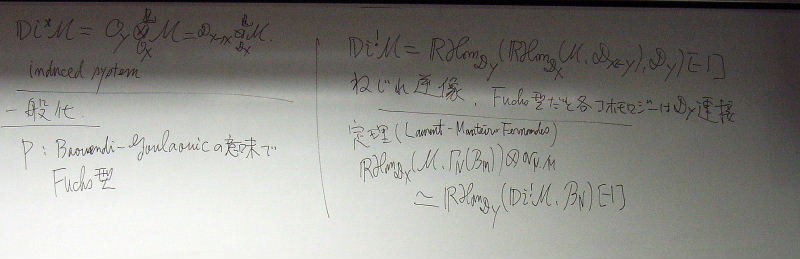 𝔻i*ℳ = 𝒪_Y ⊗^R_{𝒪_X} ℳ = 𝒟_{Y→X} ⊗^R_{𝒟_X} ℳ.
induced system
一般化.
P : Baouendi-Goulaouic の意味で
Fuchs型
𝔻i^!ℳ = ℝHom_{𝒟_Y}(ℝHom_{𝒟_X}(ℳ, 𝒟_{X←Y}), 𝒟_Y)[-1]
ねじれ逆像. Fuchs型だと各コホモロジーは𝒟_Y連接
定理 (Laurent-Monteiro Fernandes)
ℝHom_{𝒟_X}(ℳ, Γ_N(B_M)) ⊗ or_{N/M}
≃ ℝHom_{𝒟_Y}(𝔻i^!ℳ, B_N)[-1]